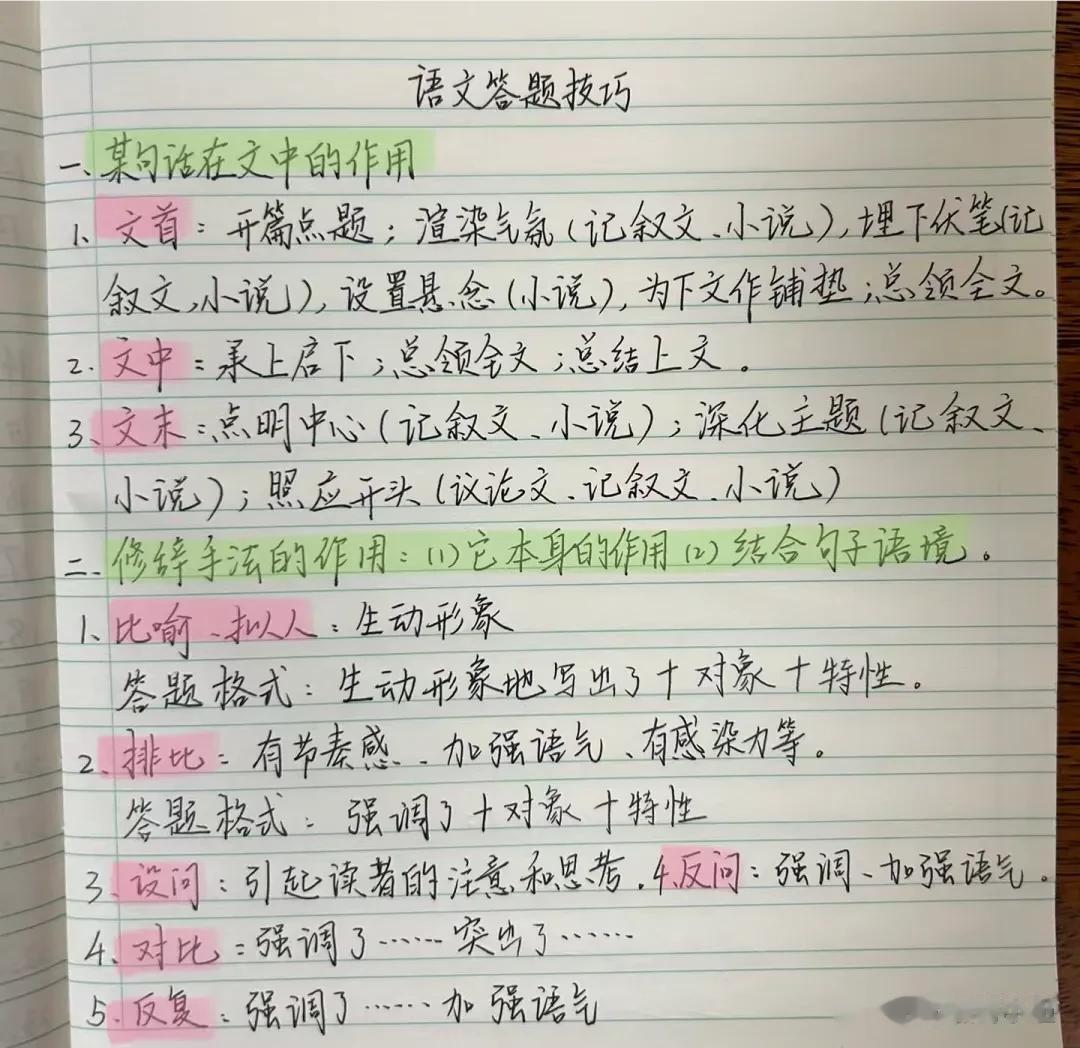 语文答题技巧
一、某句话在文中的作用
1、文首：开篇点题；渲染气氛(记叙文、小说)，埋下伏笔(记
叙文、小说)，设置悬念(小说)，为下文作铺垫；总领全文。
2、文中：承上启下；总领全文；总结上文。
3、文末：点明中心(记叙文、小说)；深化主题(记叙文、
小说)；照应开头(议论文、记叙文、小说)
二、修辞手法的作用：(1)它本身的作用(2)结合句子语境。
1、比喻、拟人：生动形象
答题格式：生动形象地写出了+对象+特性。
2、排比：有节奏感、加强语气、有感染力等。
答题格式：强调了+对象+特性
3、设问：引起读者的注意和思考。4、反问：强调、加强语气。
4、对比：强调了……突出了……
5、反复：强调了……加强语气